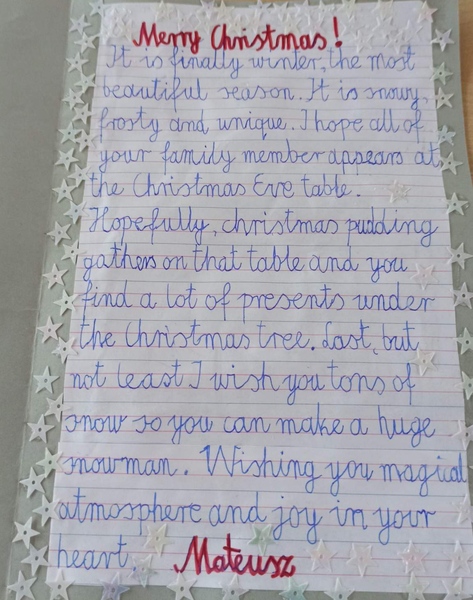 Merry Christmas!
It is finally winter, the most
beautiful season. It is snowy,
frosty and unique. I hope all of
your family member appears at
the Christmas Eve table.
Hopefully, christmas pudding
gathers on that table and you
find a lot of presents under
the Christmas tree. Last, but
not least I wish you tons of
snow so you can make a huge
snowman. Wishing you magical
atmosphere and joy in your
heart. Mateusz